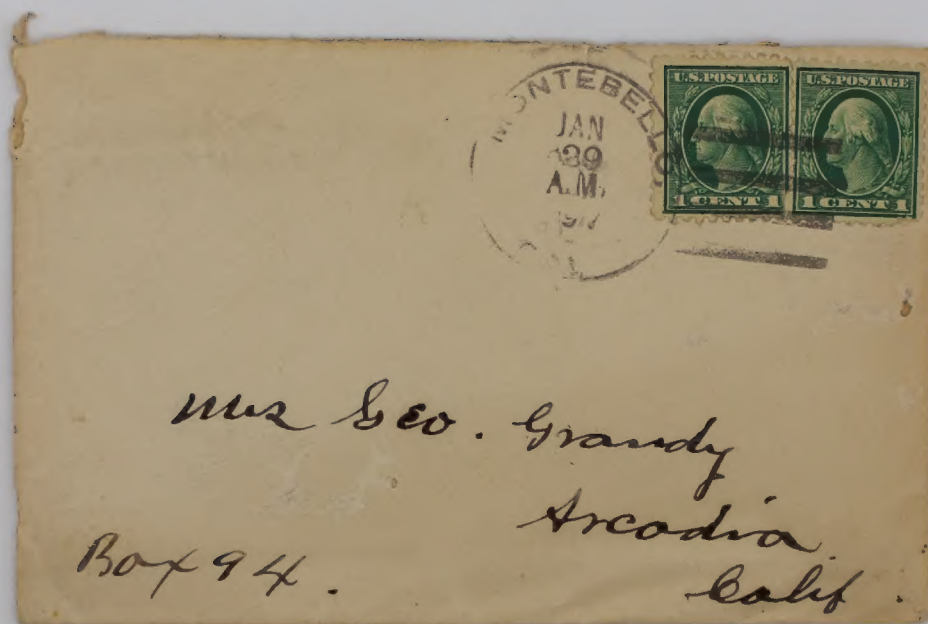 MONTEBELLO
JAN
A.M.
CAL.
U.S. POSTAGE
1 CENT 1
U.S. POSTAGE
1 CENT 1
Mrs Geo. Grandy
Arcadia.
Box 94.
Calif.